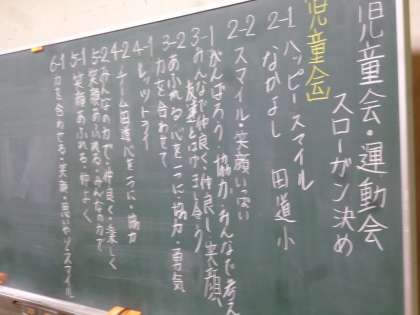 児童会・運動会
スローガン決め
児童会」
2-1 ハッピースマイル
なかよし 田道小
2-2 スマイル・笑顔いっぱい
がんばろう・協力・みんなで考え
3-1 みんなで仲良く・仲良し・笑顔
友達とはげまし合う
3-2 あふれる心を一つに・協力・勇気
力を合わせて
4-1 レッツトライ
4-2 チーム田道 心を一つに・協力
5-2 みんなの力で・仲良く・楽しく
笑顔あふれる・みんなの力で
5-1 笑顔あふれる・仲よく
6-1 力を合わせる・笑顔・思いやり・スマイル